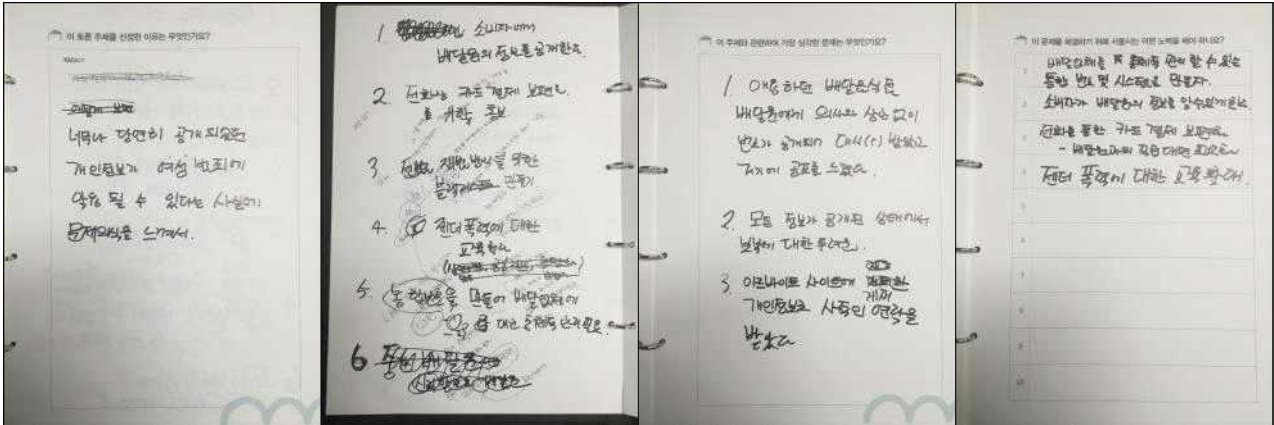 이 토론 주제를 선정한 이유는 무엇인가요?
너무나 당연히 공개되었던
개인정보가 여성 범죄에
악용 될 수 있다는 사실에
문제의식을 느껴서.
1. 소비자에게
배달원의 정보를 공개한다.
2. 전화상 카드 결제 보편화
를 위한 홍보
3. 재발방지를 위한
블랙리스트 만들기
4. 젠더폭력에 대한
교육 확대
5. 통합번호를 만들어 배달업체에
6
이 주제와 관련하여 가장 심각한 문제는 무엇인가요?
1. 애용하던 배달음식점
배달원에게 의사와 상관 없이
번호가 공개되어 대시(?) 받았고
거기에 공포를 느꼈다.
2. 모든 정보가 공개된 상태에서
보복에 대한 두려움.
3. 아르바이트 사이트에 게재한
개인정보로 사적인 연락을
받았다
이 문제를 해결하기 위해 서울시는 어떤 노력을 해야 하나요?
1 배달업체를 통제 및 관리 할 수 있는
통합 번호 및 시스템을 만들자.
2 소비자가 배달원의 정보를 알수있게한다.
3 전화를 통한 카드 결제 보편화
- 배달원과의 직접 대면 최소화
4 젠더 폭력에 대한 교육 확대.
5
6
7
8
9
10